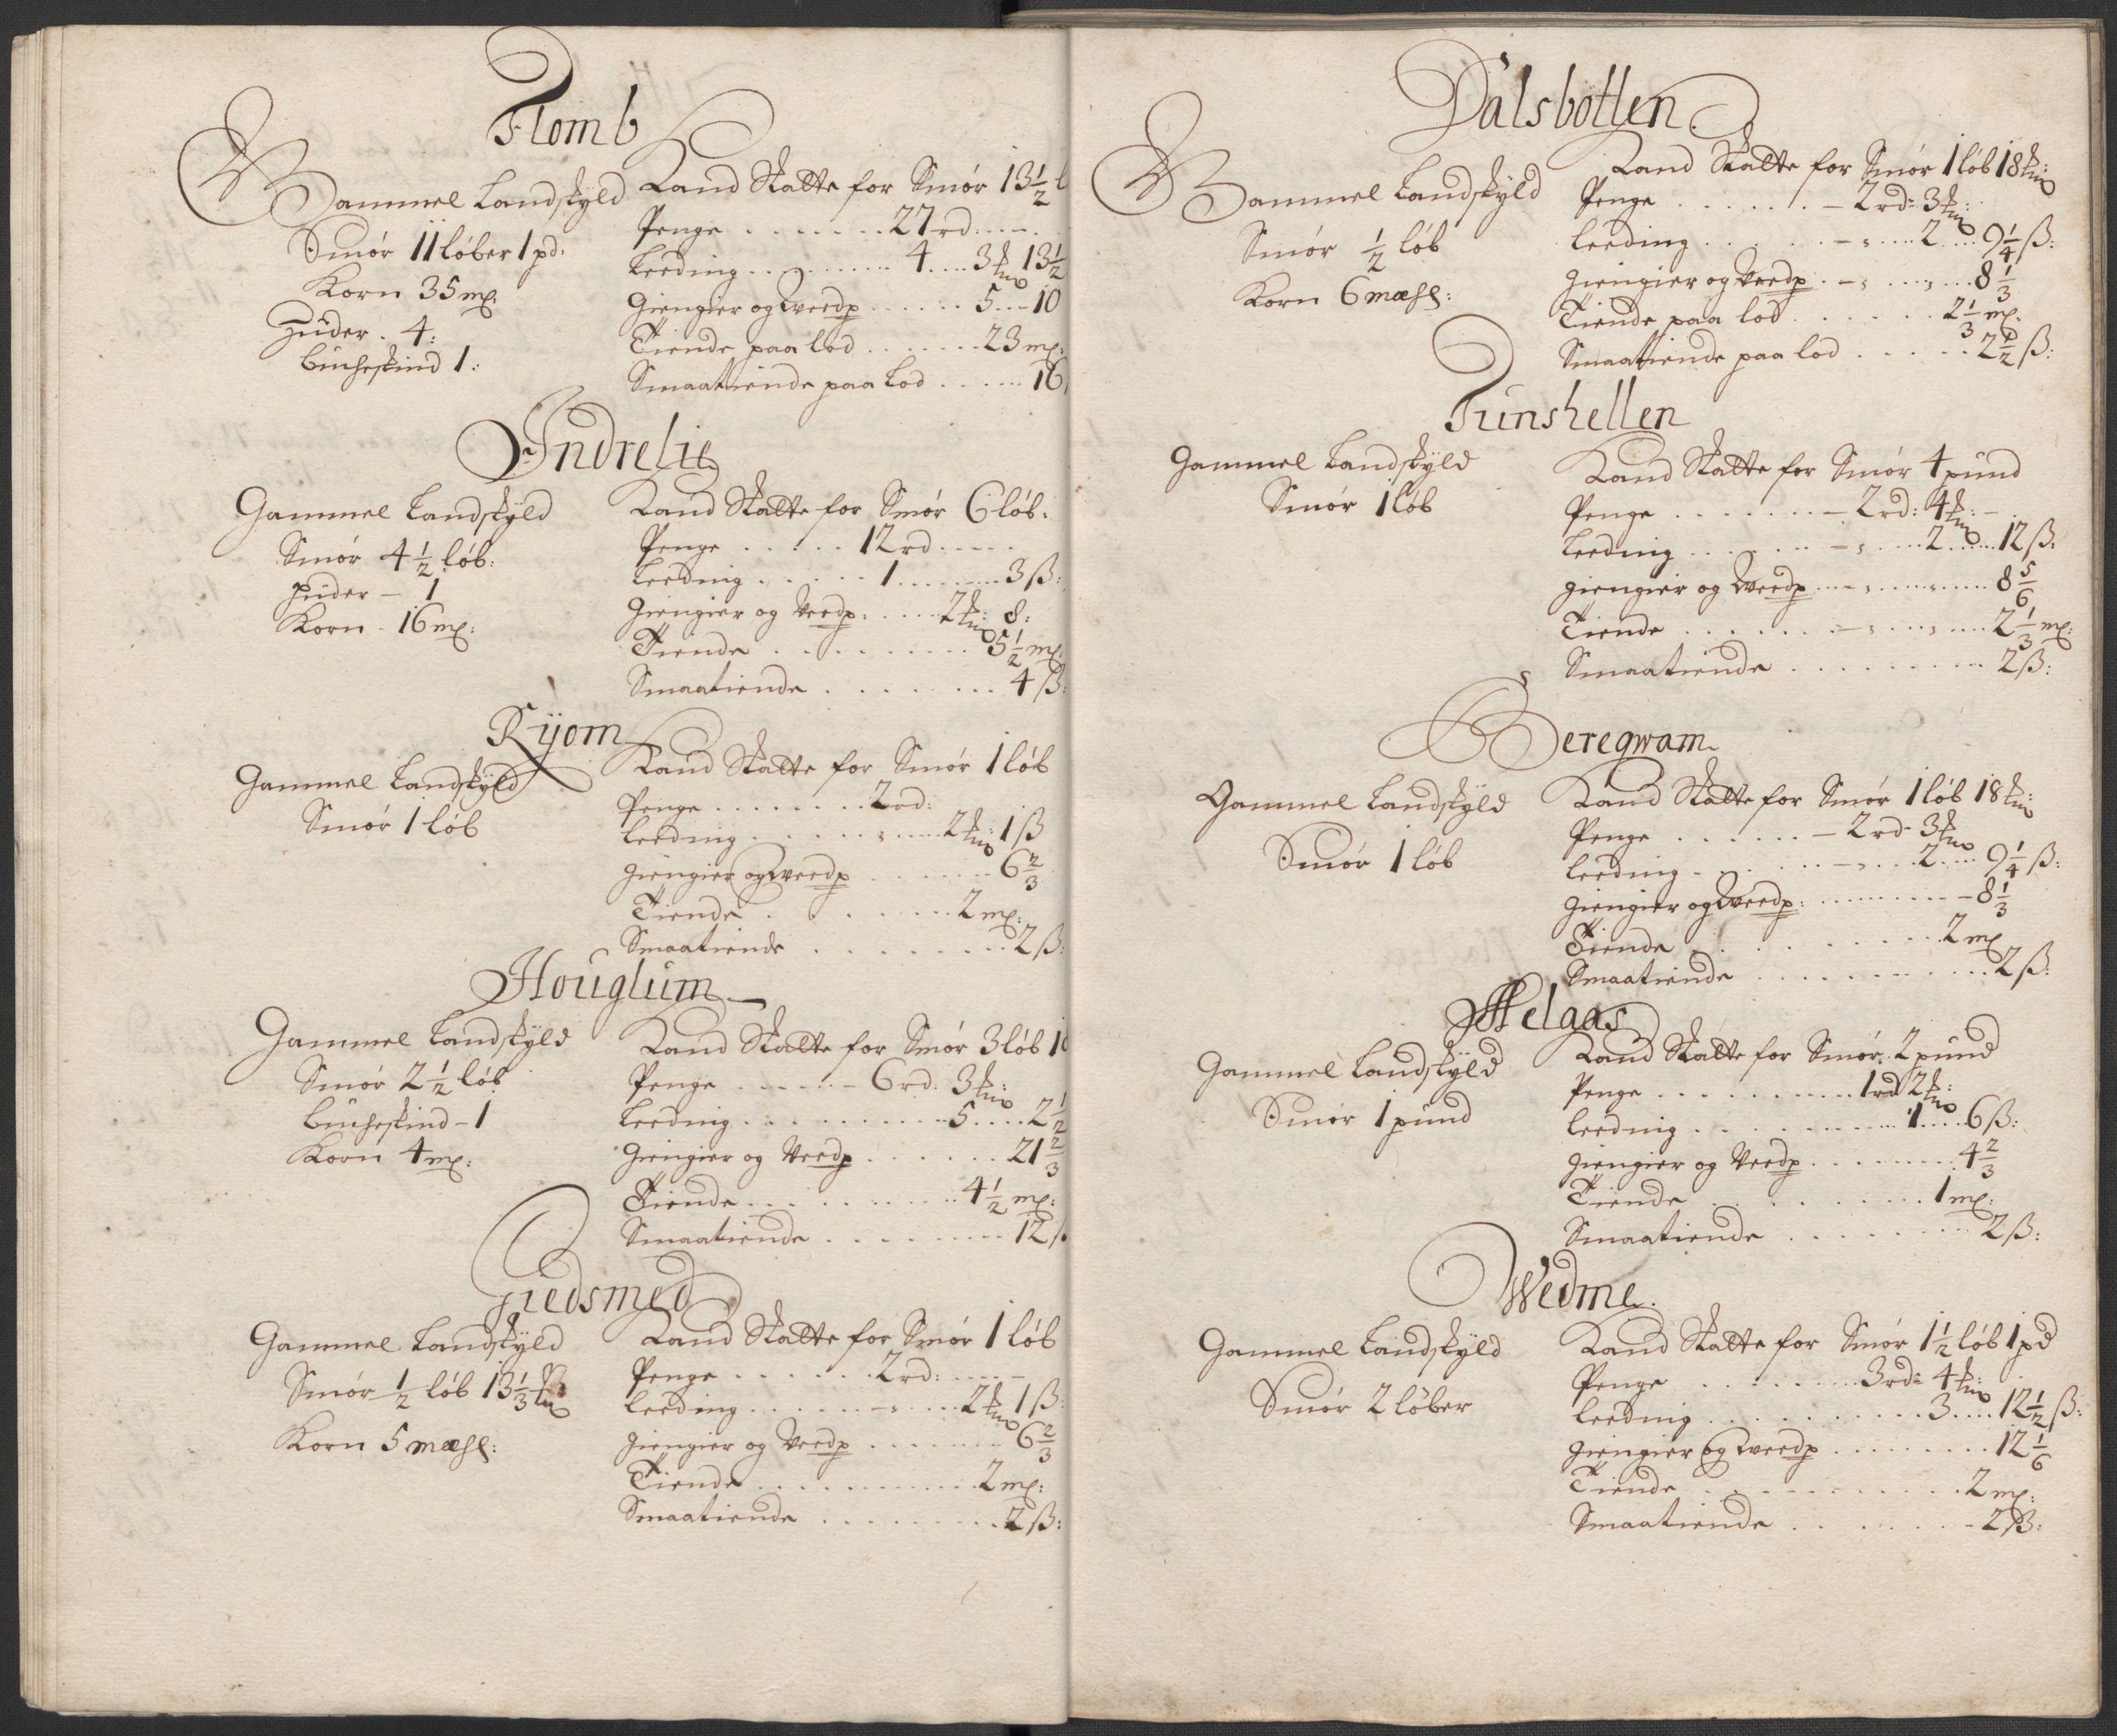 Flomb
Gammel Landskyld
Smör 11 löber 1 pd:
Korn 35 mr:
Huder . 4:
Bucheskind 1:
Land Skatte for Smör 13 1/2 l
Penge . . . . . . . 27 rd: - - -
Leeding . . . . . . . . 4 . . . . 3 13 1/2
Giengier og Weedp . . . . . . 5 . . . 10
Tiende paa lod . . . . . . . 23 mr:
Smaatiende paa Lod . . . . . . 16
Indrelie
Gammel Landskyld
Smör 4 1/2 löb:
Huder - 1
Korn - 16 mr:
Land Skatte for Smör 6 löb:
Penge . . . . . 12 rd - - - -
Leeding . . . . . . 1 . . . . . . . 3 ß:
Giengier og Weedp: . . . . . 2 8:
Tiende . . . . . . . . . . . 5 1/2 mr:
Smaatiende . . . . . . . . . 4 ß:
Ryom
Gammel Landskyld
Smör 1 löb
Land Skatte for Smör 1 löb
Penge . . . . . . . . 2 rd:
Leeding . . . . . . . . . . . 2 1 ß
Giengier og Weedp . . . . . . . 6 2/3
Tiende . . . . . . . . . 2 mr:
Smaatiende . . . . . . . . . 2 ß:
Houglum
Gammel Landskyld
Smör 2 1/2 löb
Bucheskind - 1
Korn 4 mr:
Land Skatte for Smör 3 löb 1
Penge . . . . . - 6 rd: 3
Leeding . . . . . . . . . . 5 . . . . 2 1/2
Giengier og Weedp . . . . . . . 21 2/3
Tiende . . . . . . . . . . 4 1/2 mr:
Smaatiende . . . . . . . . . 12 ß
Giedsmed
Gammel Landskyld
Smör 1/2 löb 13 1/3
Korn 5 mæhl:
Land Skatte for Smör 1 löb
Penge . . . . . . . 2 rd: - - -
Leeding . . . . . . . . . . . 2 1 ß:
Giengier og Weedp . . . . . . . 6 2/3
Tiende . . . . . . . . . . . 2 mr:
Smaatiende . . . . . . . . . 2 ß:
Dalsbotten
Gammel Landskyld
Smör 1/2 löb
Korn 6 mæhl:
Land Skatte for Smör 1 löb 18
Penge . . . . . . . - 2 rd: 3
Leeding . . . . . . - . . . . 2 . . . . 9 1/4 ß:
Giengier og Weedp . - . . . . . . . 8 1/3
Tiende paa lod . . . . . . . 2 1/3 mr:
Smaatiende paa lod . . . . . . 2 1/2 ß:
Tunshellen
Gammel Landskyld
Smör 1 löb
Land Skatte for Smör 4 pund
Penge . . . . . . . - 2 rd: 4 : -
Leeding . . . . . . - . . . . 2 . . . . 12 ß:
Giengier og Weedp . . . . . . . . . . 8 5/6
Tiende . . . . . . . - . . . . . . 2 1/3 mr:
Smaatiende . . . . . . . . . 2 ß:
Beregwam
Gammel Landskyld
Smör 1 löb
Land Skatte for Smör 1 löb 18
Penge . . . . . . - 2 rd - 3
Leeding . . . . . . - . . . . 2 . . . . 9 1/4 ß:
Giengier og Weedp: . . . . . . . . - 8 1/3
Tiende . . . . . . . . . . 2 mr
Smaatiende . . . . . . . . . . . 2 ß:
Helgaas
Gammel Landskyld
Smör 1 pund
Land Skatte for Smör 2 pund
Penge . . . . . . . . . . . 1 rd 2
Leeding . . . . . . . . . . . 1 . . . . 6 ß:
Giengier og Weedp . . . . . . . . 4 2/3
Tiende . . . . . . . . . . 1 mr:
Smaatiende . . . . . . . . 2 ß:
Wedme
Gammel Landskyld
Smör 2 löber
Land Skatte for Smör 1 1/2 löb 1 pd
Penge . . . . . . . 3 rd: 4
Leeding . . . . . . . . . . . 3 . . . . 12 1/2 ß:
Giengier og Weedp . . . . . . . . 12 1/6
Tiende . . . . . . . . . . . 2 mr:
Smaatiende . . . . . . . . - 2 ß: